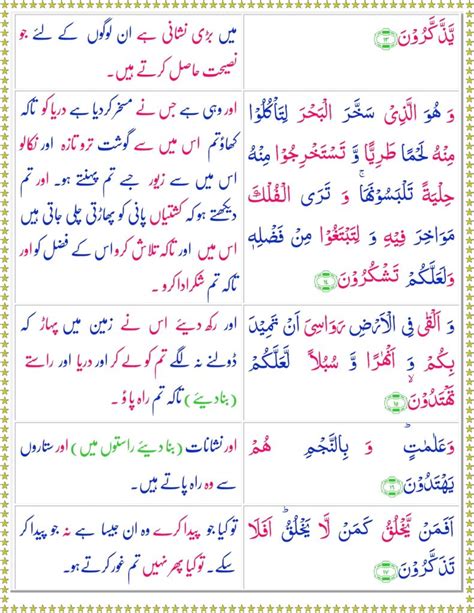 یَّذَّكَّرُوْنَ ﴿۱۳﴾
میں بڑی نشانی ہے ان لوگوں کے لئے جو
نصیحت حاصل کرتے ہیں۔
وَ هُوَ الَّذِیْ سَخَّرَ الْبَحْرَ لِتَاْكُلُوْا
مِنْهُ لَحْمًا طَرِیًّا وَّ تَسْتَخْرِجُوْا مِنْهُ
حِلْیَةً تَلْبَسُوْنَهَا ۚ وَ تَرَی الْفُلْكَ
مَوَاخِرَ فِیْهِ وَ لِتَبْتَغُوْا مِنْ فَضْلِهٖ
وَ لَعَلَّكُمْ تَشْكُرُوْنَ ﴿۱۴﴾
اور وہی ہے جس نے مسخر کردیا ہے دریا کو تاکہ
کھاؤتم اس میں سے گوشت تروتازہ اور نکالو
اس میں سے زیور جسے تم پہنتے ہو۔ اور
دیکھتے ہو کہ کشتیاں پانی کو پھاڑتی چلی جاتی ہیں
اس میں اور تاکہ تلاش کرو اس کے فضل کو اور
تاکہ تم شکراداکرو۔
وَ اَلْقٰی فِی الْاَرْضِ رَوَاسِیَ اَنْ تَمِیْدَ
بِكُمْ وَ اَنْهٰرًا وَّ سُبُلًا لَّعَلَّكُمْ
تَهْتَدُوْنَ ﴿۱۵﴾
اور رکھ دیئے اس نے زمین میں پہاڑ کہ
ڈولنے نہ لگے تم کو لے کر اور دریا اور راستے
(بنادیئے) تاکہ تم راہ پاؤ۔
وَ عَلٰمٰتٍ ؕ وَ بِالنَّجْمِ هُمْ
یَهْتَدُوْنَ ﴿۱۶﴾
اور نشانات (بنادیئے راستوں میں) اور ستاروں
سے وہ راہ پاتے ہیں۔
اَفَمَنْ یَّخْلُقُ كَمَنْ لَّا یَخْلُقُ ؕ اَفَلَا
تَذَكَّرُوْنَ ﴿۱۷﴾
تو کیا جو پیدا کرے وہ ان جیسا ہے جو نہ پیدا کر
سکے۔ تو کیا پھر نہیں تم غور کرتے ہو۔